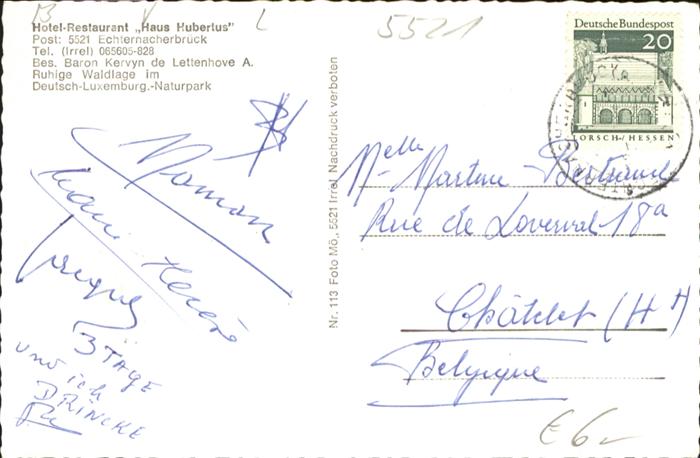 B V L
5521
Hotel-Restaurant „Haus Hubertus"
Post: 5521 Echternacherbrück
Tel. (Irrel) 065605-828
Bes. Baron Kervyn de Lettenhove A.
Ruhige Waldlage im
Deutsch-Luxemburg.-Naturpark
Maman
3 TAGE
und ich
DRINCKE
Nr. 113 Foto Mö., 5521 Irrel Nachdruck verboten
Deutsche Bundespost
20
LORSCH / HESSEN
Melle Martine Bertrand
Rue de Loverval 18a
Châtelet (Ht)
Belgique
€ 6-